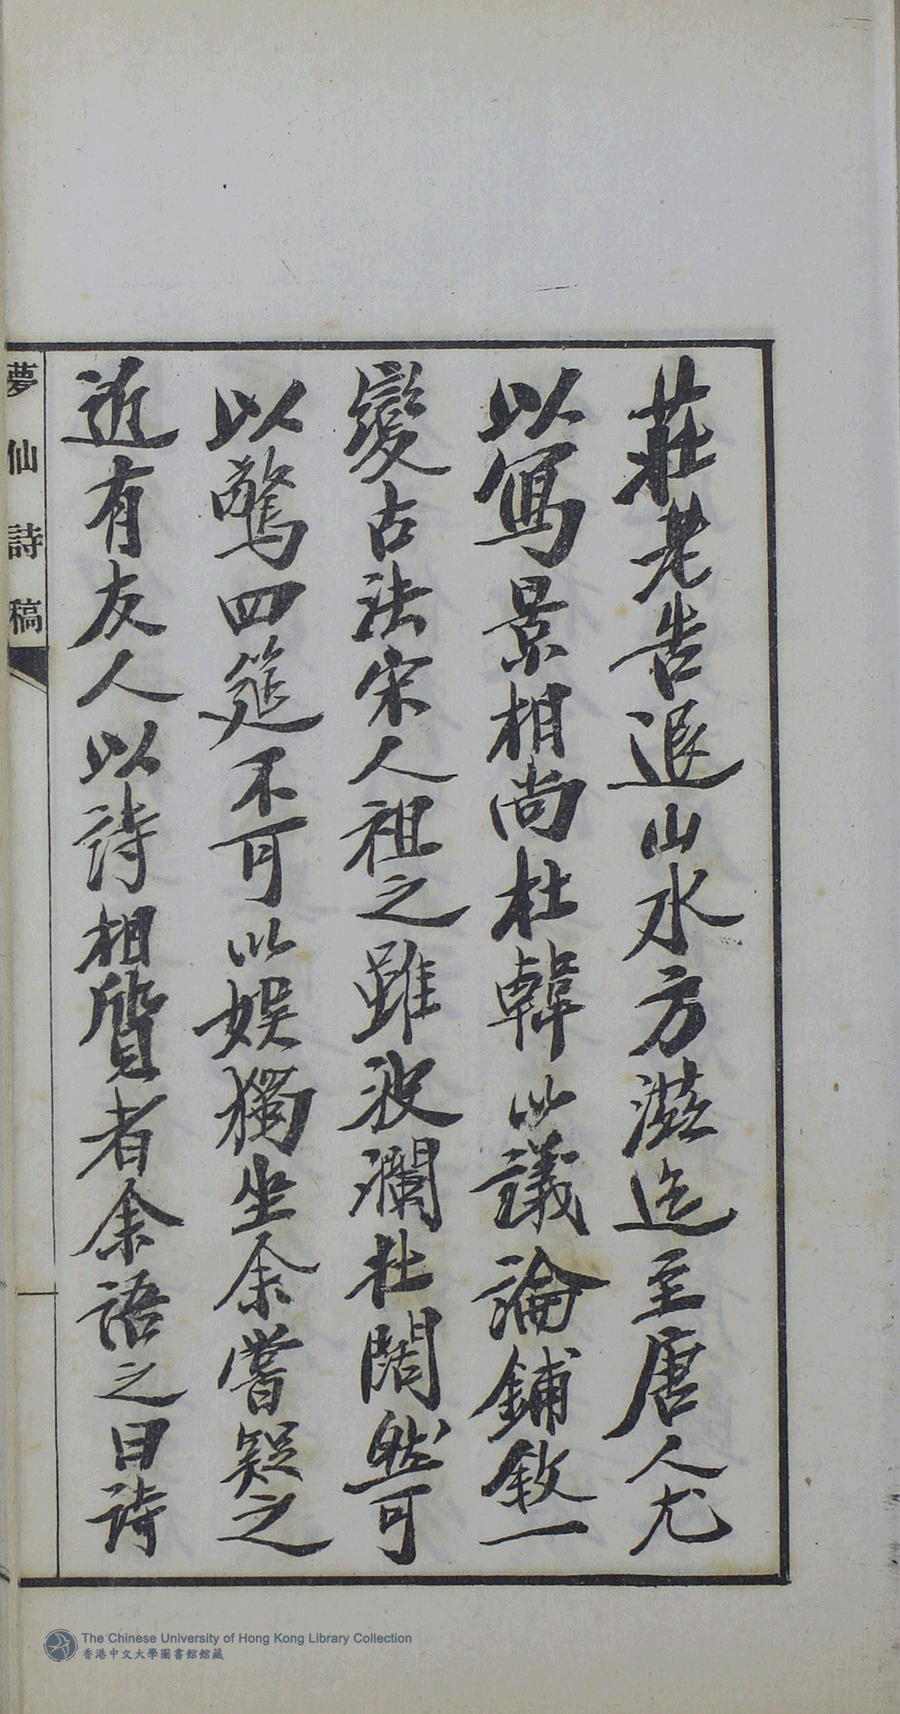 莊老告退山水方滋迄至唐人尤
以寫景相尚杜韓以議論鋪敘一
變古法宋人祖之雖波瀾壯闊然可
以驚四筵不可以娛獨坐余嘗疑之
近有友人以詩相質者余語之曰詩
夢仙詩稿
The Chinese University of Hong Kong Library Collection
香港中文大學圖書館館藏